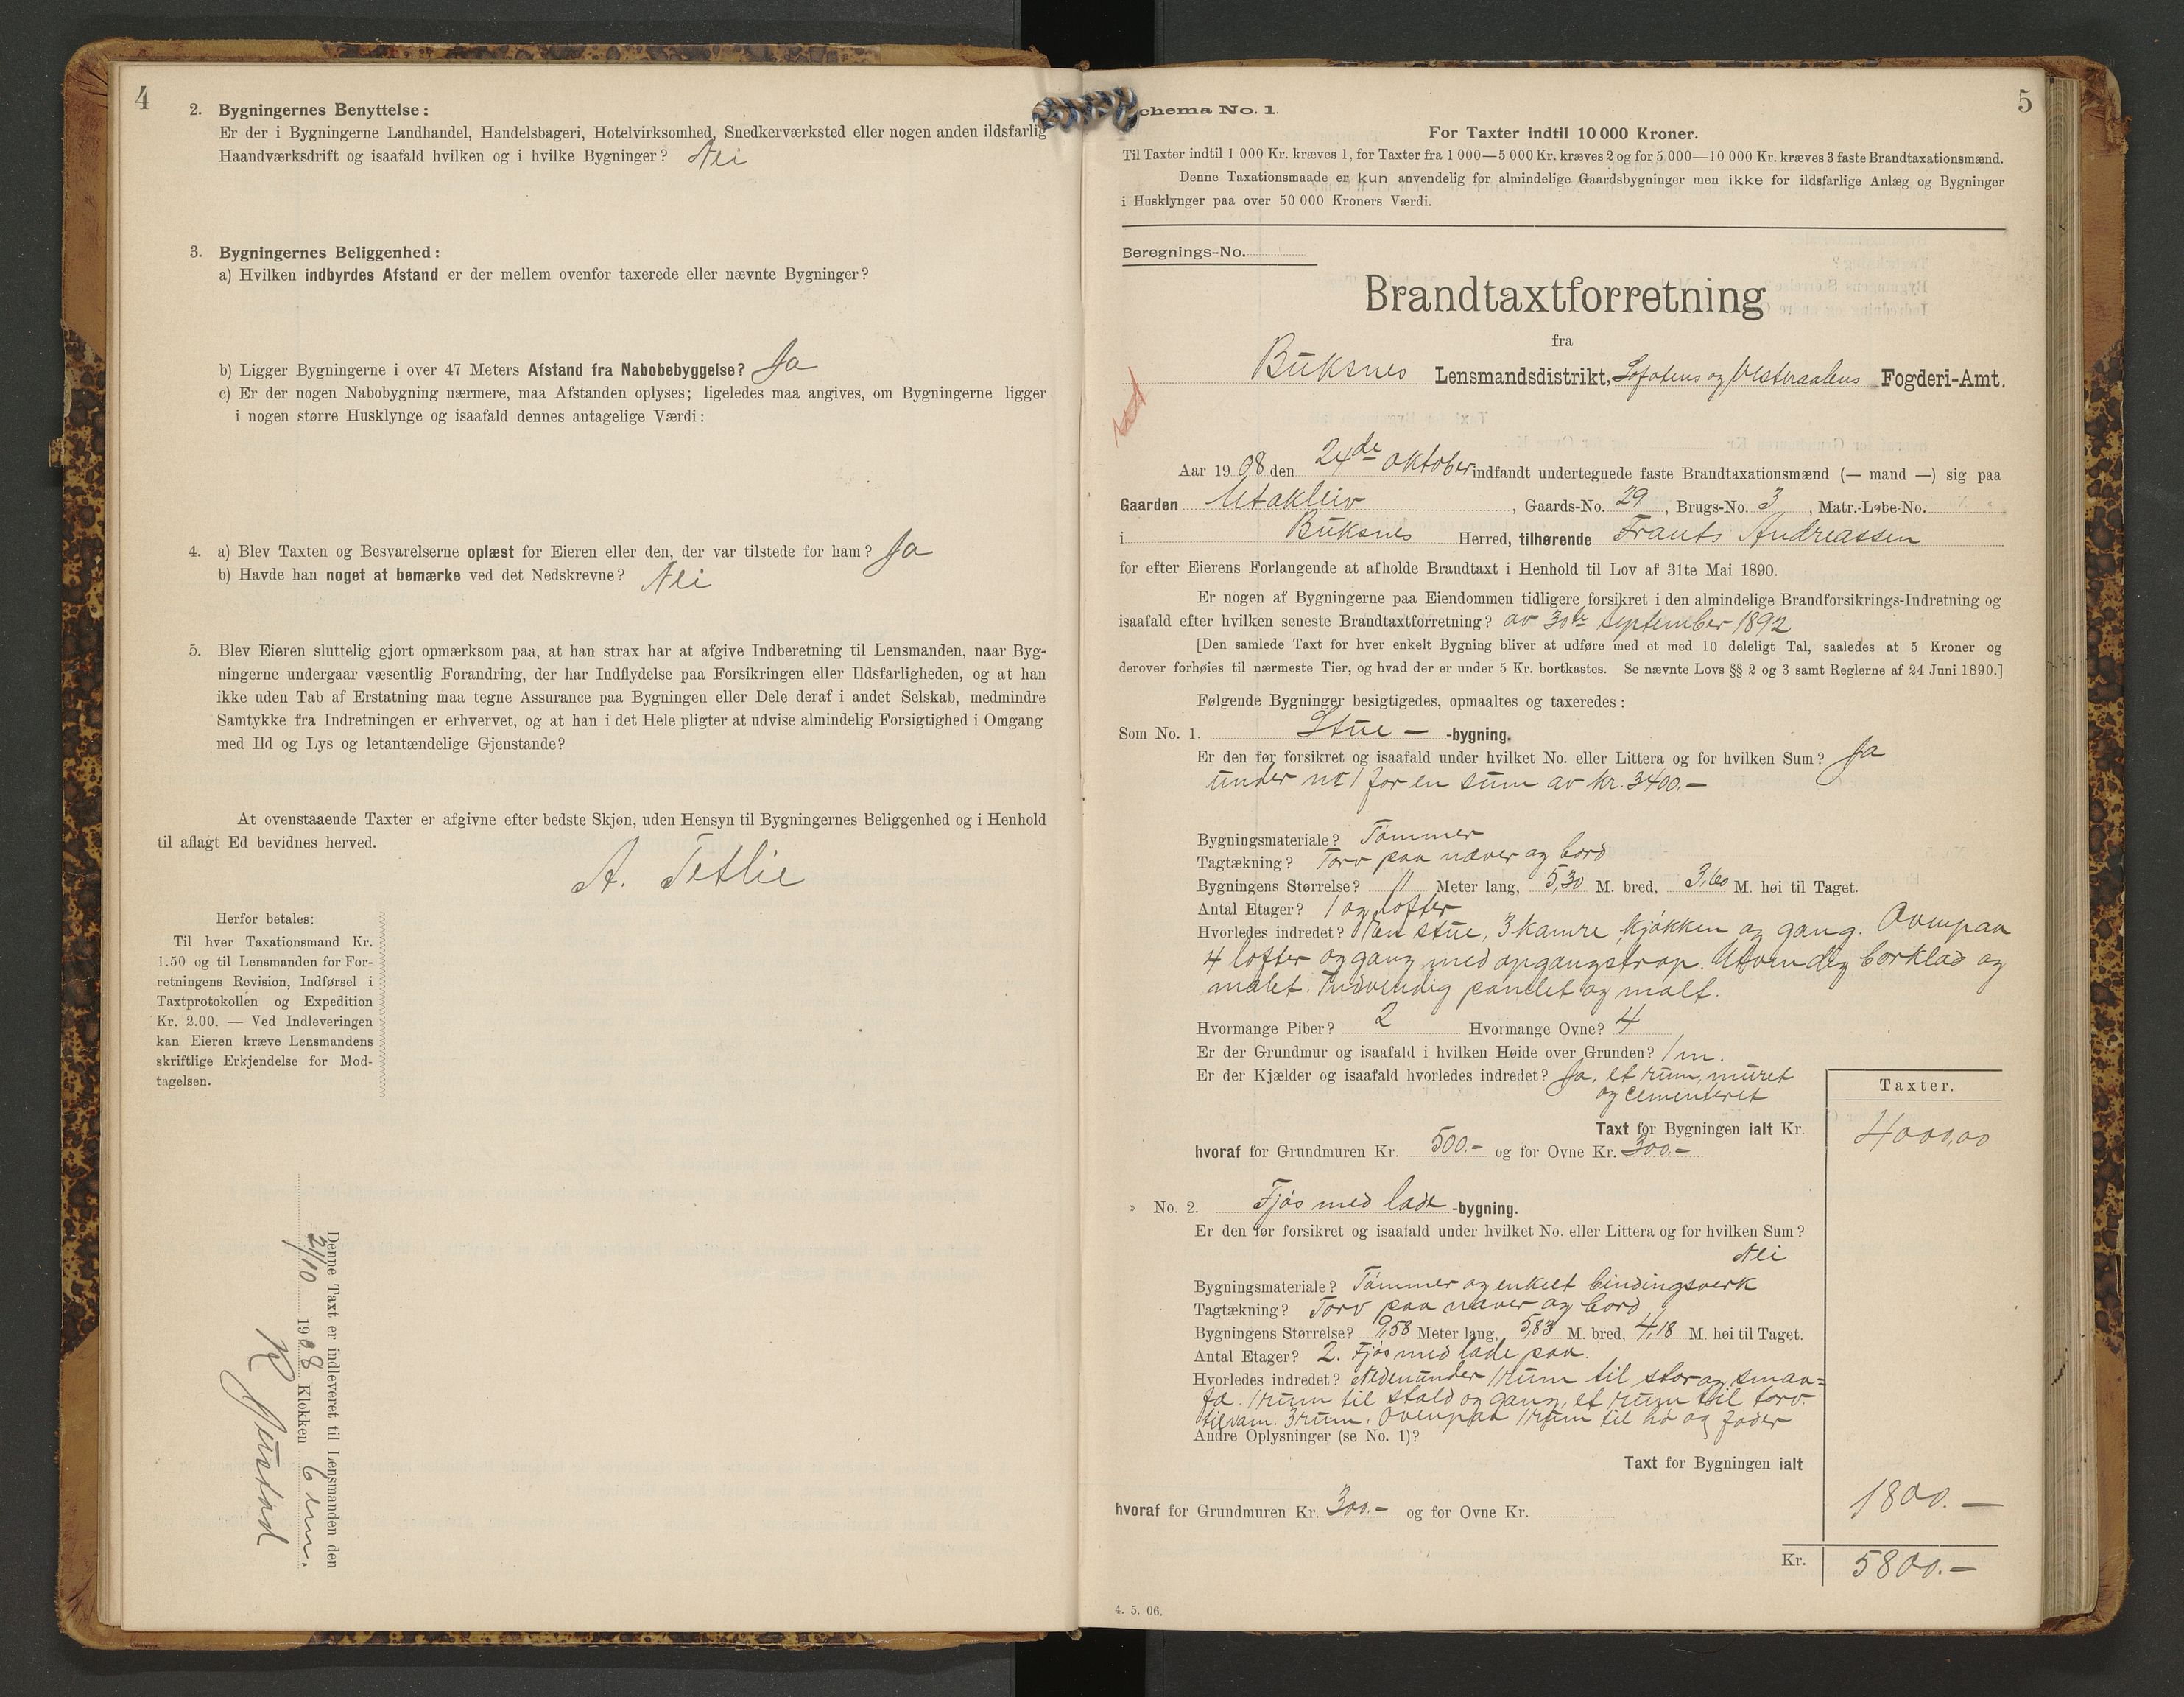 4
2. Bygningernes Benyttelse:
Er der i Bygningerne Landhandel, Handelsbageri, Hotelvirksomhed, Snedkerværksted eller nogen anden ildsfarlig
Haandværksdrift og isaafald hvilken og i hvilke Bygninger? Nei
3. Bygningernes Beliggenhed:
a) Hvilken indbyrdes Afstand er der mellem ovenfor taxerede eller nævnte Bygninger?
b) Ligger Bygningerne i over 47 Meters Afstand fra Nabobebyggelse? Ja
c) Er der nogen Nabobygning nærmere, maa Afstanden oplyses; ligeledes maa angives, om Bygningerne ligger
i nogen større Husklynge og isaafald dennes antagelige Værdi:
4. a) Blev Taxten og Besvarelserne oplæst for Eieren eller den, der var tilstede for ham? Ja
b) Havde han noget at bemærke ved det Nedskrevne? Nei
5. Blev Eieren sluttelig gjort opmærksom paa, at han strax har at afgive Indberetning til Lensmanden, naar Byg-
ningerne undergaar væsentlig Forandring, der har Indflydelse paa Forsikringen eller Ildsfarligheden, og at han
ikke uden Tab af Erstatning maa tegne Assurance paa Bygningen eller Dele deraf i andet Selskab, medmindre
Samtykke fra Indretningen er erhvervet, og at han i det Hele pligter at udvise almindelig Forsigtighed i Omgang
med Ild og Lys og letantændelige Gjenstande?
At ovenstaaende Taxter er afgivne efter bedste Skjøn, uden Hensyn til Bygningernes Beliggenhed og i Henhold
til aflagt Ed bevidnes herved.
A. Tetlie
Herfor betales:
Til hver Taxationsmand Kr.
1.50 og til Lensmanden for For-
retningens Revision, Indførsel i
Taxtprotokollen og Expedition
Kr. 2.00. — Ved Indleveringen
kan Eieren kræve Lensmandens
skriftlige Erkjendelse for Mod-
tagelsen.
Denne Taxt er indleveret til Lensmanden den
31/10 1908 Klokken 6 em.
5
chema No. 1.
For Taxter indtil 10 000 Kroner.
Til Taxter indtil 1 000 Kr. kræves 1, for Taxter fra 1 000—5 000 Kr. kræves 2 og for 5 000—10 000 Kr. kræves 3 faste Brandtaxationsmænd.
Denne Taxationsmaade er kun anvendelig for almindelige Gaardsbygninger men ikke for ildsfarlige Anlæg og Bygninger
i Husklynger paa over 50 000 Kroners Værdi.
Beregnings-No.
Brandtaxtforretning
fra
Buksnes Lensmandsdistrikt, Lofotens og Vesteraalens Fogderi-Amt.
Aar 1908 den 24de oktober indfandt undertegnede faste Brandtaxationsmænd (— mand —) sig paa
Gaarden Utakleiv, Gaards-No. 29, Brugs-No. 3, Matr.-Løbe-No.
i Buksnes Herred, tilhørende Frants Andreassen
for efter Eierens Forlangende at afholde Brandtaxt i Henhold til Lov af 31te Mai 1890.
Er nogen af Bygningerne paa Eiendommen tidligere forsikret i den almindelige Brandforsikrings-Indretning og
isaafald efter hvilken seneste Brandtaxtforretning? av 30te september 1892
[Den samlede Taxt for hver enkelt Bygning bliver at udføre med et med 10 deleligt Tal, saaledes at 5 Kroner og
derover forhøies til nærmeste Tier, og hvad der er under 5 Kr. bortkastes. Se nævnte Lovs §§ 2 og 3 samt Reglerne af 24 Juni 1890.]
Følgende Bygninger besigtigedes, opmaaltes og taxeredes:
Som No. 1. Stue- -bygning.
Er den før forsikret og isaafald under hvilket No. eller Littera og for hvilken Sum? Ja
under no 1 for en sum av kr. 3400.-
Bygningsmateriale? Tømmer
Tagtækning? Torv paa næver og bord
Bygningens Størrelse? 11 Meter lang, 5,30 M. bred, 3,60 M. høi til Taget.
Antal Etager? 1 og lofter
Hvorledes indredet? En stue, 3 kamre, kjøkken og gang. Ovenpaa
4 lofter og gang med opgangstrap. Utvendig borklad og
malet. Indvendig panelet og malt.
Hvormange Piber? 2 Hvormange Ovne? 4
Er der Grundmur og isaafald i hvilken Høide over Grunden? 1 m.
Er der Kjælder og isaafald hvorledes indredet? Ja, et rum, muret
og cementeret
Taxter.
Taxt for Bygningen ialt Kr. 4000,00
hvoraf for Grundmuren Kr. 500.- og for Ovne Kr. 300.-
» No. 2. Fjøs med lade -bygning.
Er den før forsikret og isaafald under hvilket No. eller Littera og for hvilken Sum?
Nei
Bygningsmateriale? Tømmer og enkelt bindingsverk
Tagtækning? Torv paa næver og bord
Bygningens Størrelse? 9,58 Meter lang, 5,83 M. bred, 4,18 M. høi til Taget.
Antal Etager? 2. Fjøs med lade paa.
Hvorledes indredet? Nedenunder 1 rum til stor og smaa-
fæ. 1 rum til stald og gang, et rum til torv.
3 rum. Ovenpaa 1 rum til hø og foder
Andre Oplysninger (se No. 1)?
Taxt for Bygningen ialt
1800.-
hvoraf for Grundmuren Kr. 300.- og for Ovne Kr.
Kr. 5800.-
4. 5. 06.